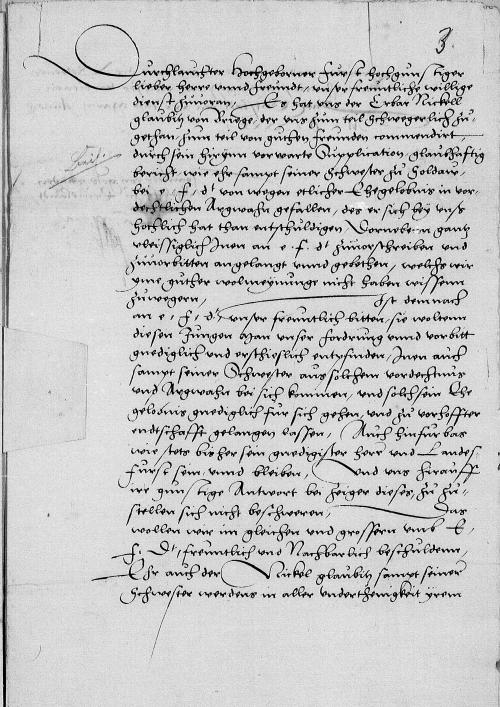 3.
Durchlauchter Hochgeborner Furst hochgunstiger
lieber herre vnnd freundt, vnser freuntliche willige
dienst zuuoran, Es hat vns der Erbar Nickell
glaubitz von Briege, der vns zum teil schwegerlich zu-
gethan, zum teil von guthen freunden commendirt,
durch sein hirinn vorwarte Supplication, glaubhafftig
bericht, wie ehr sampt seiner Schwester zu Holdaw,
bei e. f. d. von wegen etlicher Ehegelobnis in vor-
dechtlichen Argwahn gefallen, des er sich bey vnß
hochlich hat than entschuldigen, Dorneben gantz
vleissiglich Inen an e. f. d. zuuorschreiben vnd
zuuorbitten angelangt vnnd gebethen, welchs wir
yme guther wolmeynunge nicht haben wissenn
zuwegern, Ist demnach
an e. f. d. vnser freuntlich bitten, sie woltenn
diesen Jungen Man vnser fordrung vnnd vorbitt
gnediglich vnd erschieslich entpfinden, Inen auch
sampt seiner Schwester aus solchem vordechtnus
vnd Argwahn bei sich kommen, vnd solch sein Ehe
gelobnis gnediglich fur sich gehen, vnd zu vorhoffter
endtschafft gelangen lassen, Auch hinfur bas
wie stets bisher sein gnedigster herr vnd Landes-
furst sein vnnd bleiben, Vnd vns hirauff
ire gunstige Antwort bei zeiger dieses, zu zu-
stellen sich nicht beschweren, Das
wollen wir im gleichen vnd grossern vmb E.
f. D. freuntlich vnd Nachbarlich beschuldenn,
Ehr auch der Nickel glaubitz sampt seiner
Schwester werdens in aller underthenigkeit yrem